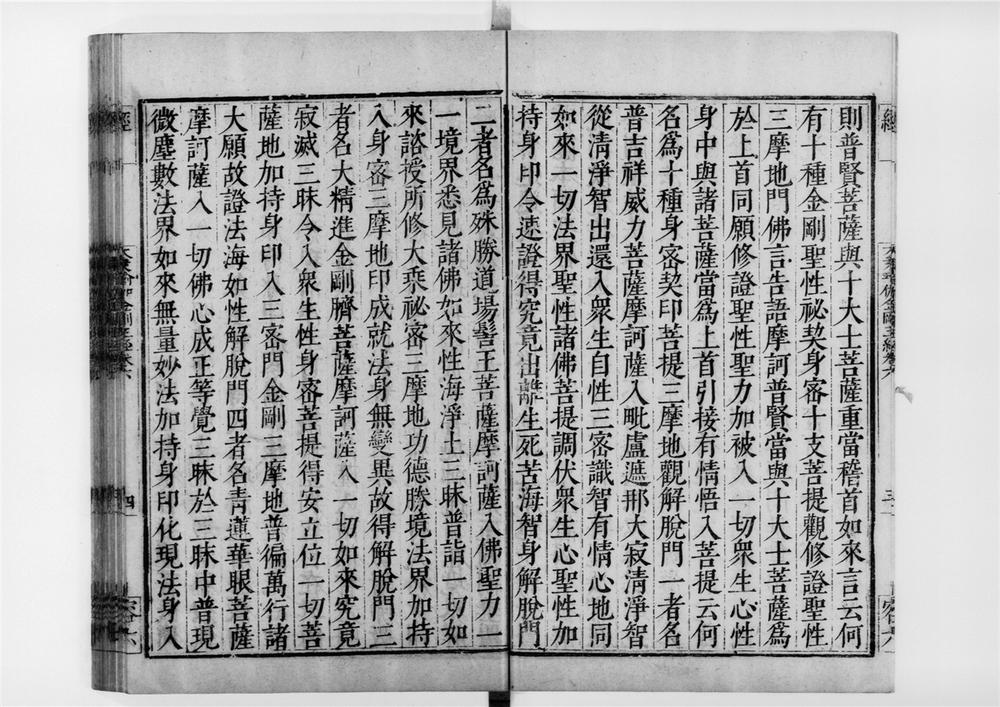 則普賢菩薩與十大士菩薩重當稽首如來言云何
有十種金剛聖性祕契身密十支菩提觀修證聖性
三摩地門佛言告語摩訶普賢當與十大士菩薩爲
於上首同願修證聖性聖力加被入一切衆生心性
身中與諸菩薩當爲上首引接有情悟入菩提云何
名爲十種身密契印菩提三摩地觀解脫門一者名
普吉祥威力菩薩摩訶薩入毗盧遮那大寂清淨智
從清淨智出還入衆生自性三密識智有情心地同
如來一切法界聖性諸佛菩提調伏衆生心聖性加
持身印令速證得究竟出離生死苦海智身解脫門
二者名爲殊勝道場髻王菩薩摩訶薩入佛聖力一
一境界悉見諸佛如來性海淨土三昧普詣一切如
來諮授所修大乘祕密三摩地功德勝境法界加持
入身密三摩地印成就法身無變異故得解脫門三
者名大精進金剛臍菩薩摩訶薩入一切如來究竟
寂滅三昧令入衆生性身密菩提得安立位一切菩
薩地加持身印入三密門金剛三摩地普徧萬行諸
大願故證法海如性解脫門四者名靑蓮華眼菩薩
摩訶薩入一切佛心成正等覺三昧於三昧中普現
微塵數法界如來無量妙法加持身印化現法身入
經
四
容六